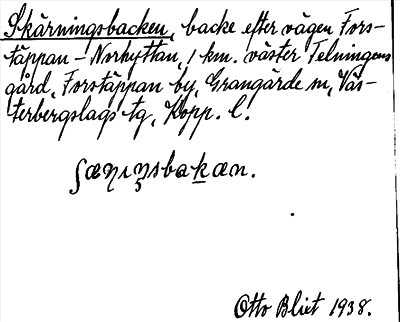 Skärningsbacken, backe efter vägen Fors-
täppan - Norhyttan, 1 km. väster Telningens
gård, Forstäppan by, Grangärde sn, Väs-
terbergslags tg, Kopp. l.
ʃæɳɩŋsbakæn.
Otto Blixt 1938.